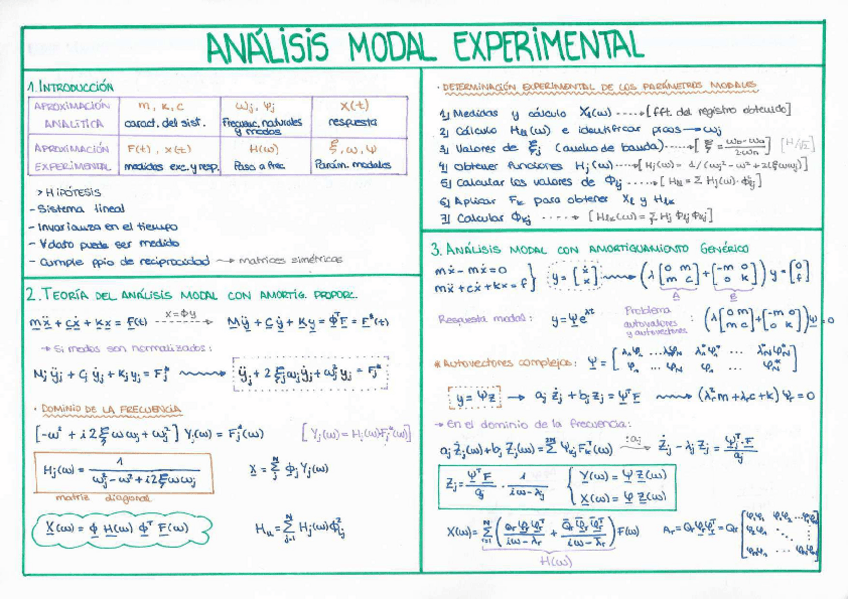 ANÁLISIS MODAL EXPERIMENTAL
1. INTRODUCCIÓN
APROXIMACIÓN ANALÍTICA
m, k, c
caract. del sist.
ωj, φj
Frecuenc. naturales y modos
x(t)
respuesta
APROXIMACIÓN EXPERIMENTAL
F(t), x(t)
medidas exc. y resp.
H(ω)
Paso a frec.
ξ, ω, ψ
Parám. modales
> HIPÓTESIS
- Sistema lineal
- Invarianza en el tiempo
- ∀ dato puede ser medido
- Cumple ppio de reciprocidad → matrices simétricas
2. TEORÍA DEL ANÁLISIS MODAL CON AMORTIG. PROPORC.
mẍ + cẋ + kx = F(t) → x=Φy → Mÿ + Cẏ + Ky = Φ^T F = F*(t)
→ Si modos son normalizados:
Mj ÿj + Cj ẏj + Kj yj = Fj* → ÿj + 2ξj ωj ẏj + ωj² yj = Fj*
· DOMINIO DE LA FRECUENCIA
[-ω² + i2ξωωj + ωj²] Yj(ω) = Fj*(ω) [Yj(ω) = Hj(ω)Fj*(ω)]
Hj(ω) = 1 / (ωj² - ω² + i2ξωωj)
X = Σj Φj Yj(ω)
matriz diagonal
X(ω) = Φ H(ω) Φ^T F(ω)
Hll = Σ(j=1, N) Hj(ω) Φlj²
· DETERMINACIÓN EXPERIMENTAL DE LOS PARÁMETROS MODALES
1) Medidas y cálculo Xl(ω) → [fft del registro obtenido]
2) Cálculo Hll(ω) e identificar picos → ωj
3) Valores de ξj (ancho de banda) → [ξ = (ωb - ωa) / 2ωn] [H/√2]
4) Obtener funciones Hj(ω) → [Hj(ω) = 1/(ωj² - ω² + 2iξωωj)]
5) Calcular los valores de Φlj → [Hll = Σ Hj(ω)·Φlj²]
6) Aplicar Fk para obtener Xl y Hlk
7) Calcular Φkj → [Hlk(ω) = Σ Hj Φlj Φkj]
3. ANÁLISIS MODAL CON AMORTIGUAMIENTO GENÉRICO
mẋ - mẋ = 0
mẍ + cẋ + kx = f
y = [ẋ x] → (λ [0 m m c] + [-m 0 0 k]) y = [0 f]
A B
Respuesta modal: y = Ψe^λt
Problema autovalores y autovectores: (λ [0 m m c] + [-m 0 0 k]) Ψ = 0
* Autovectores complejos: Ψ =
y = Ψz → aj żj + bj zj = Ψ^T F → (λr² m + λr c + k) Ψr = 0
→ En el dominio de la frecuencia:
Zj = Ψ^T F / aj · 1 / (iω - λj)
Y(ω) = Ψ Z(ω)
X(ω) = φ Z(ω)
H(ω)